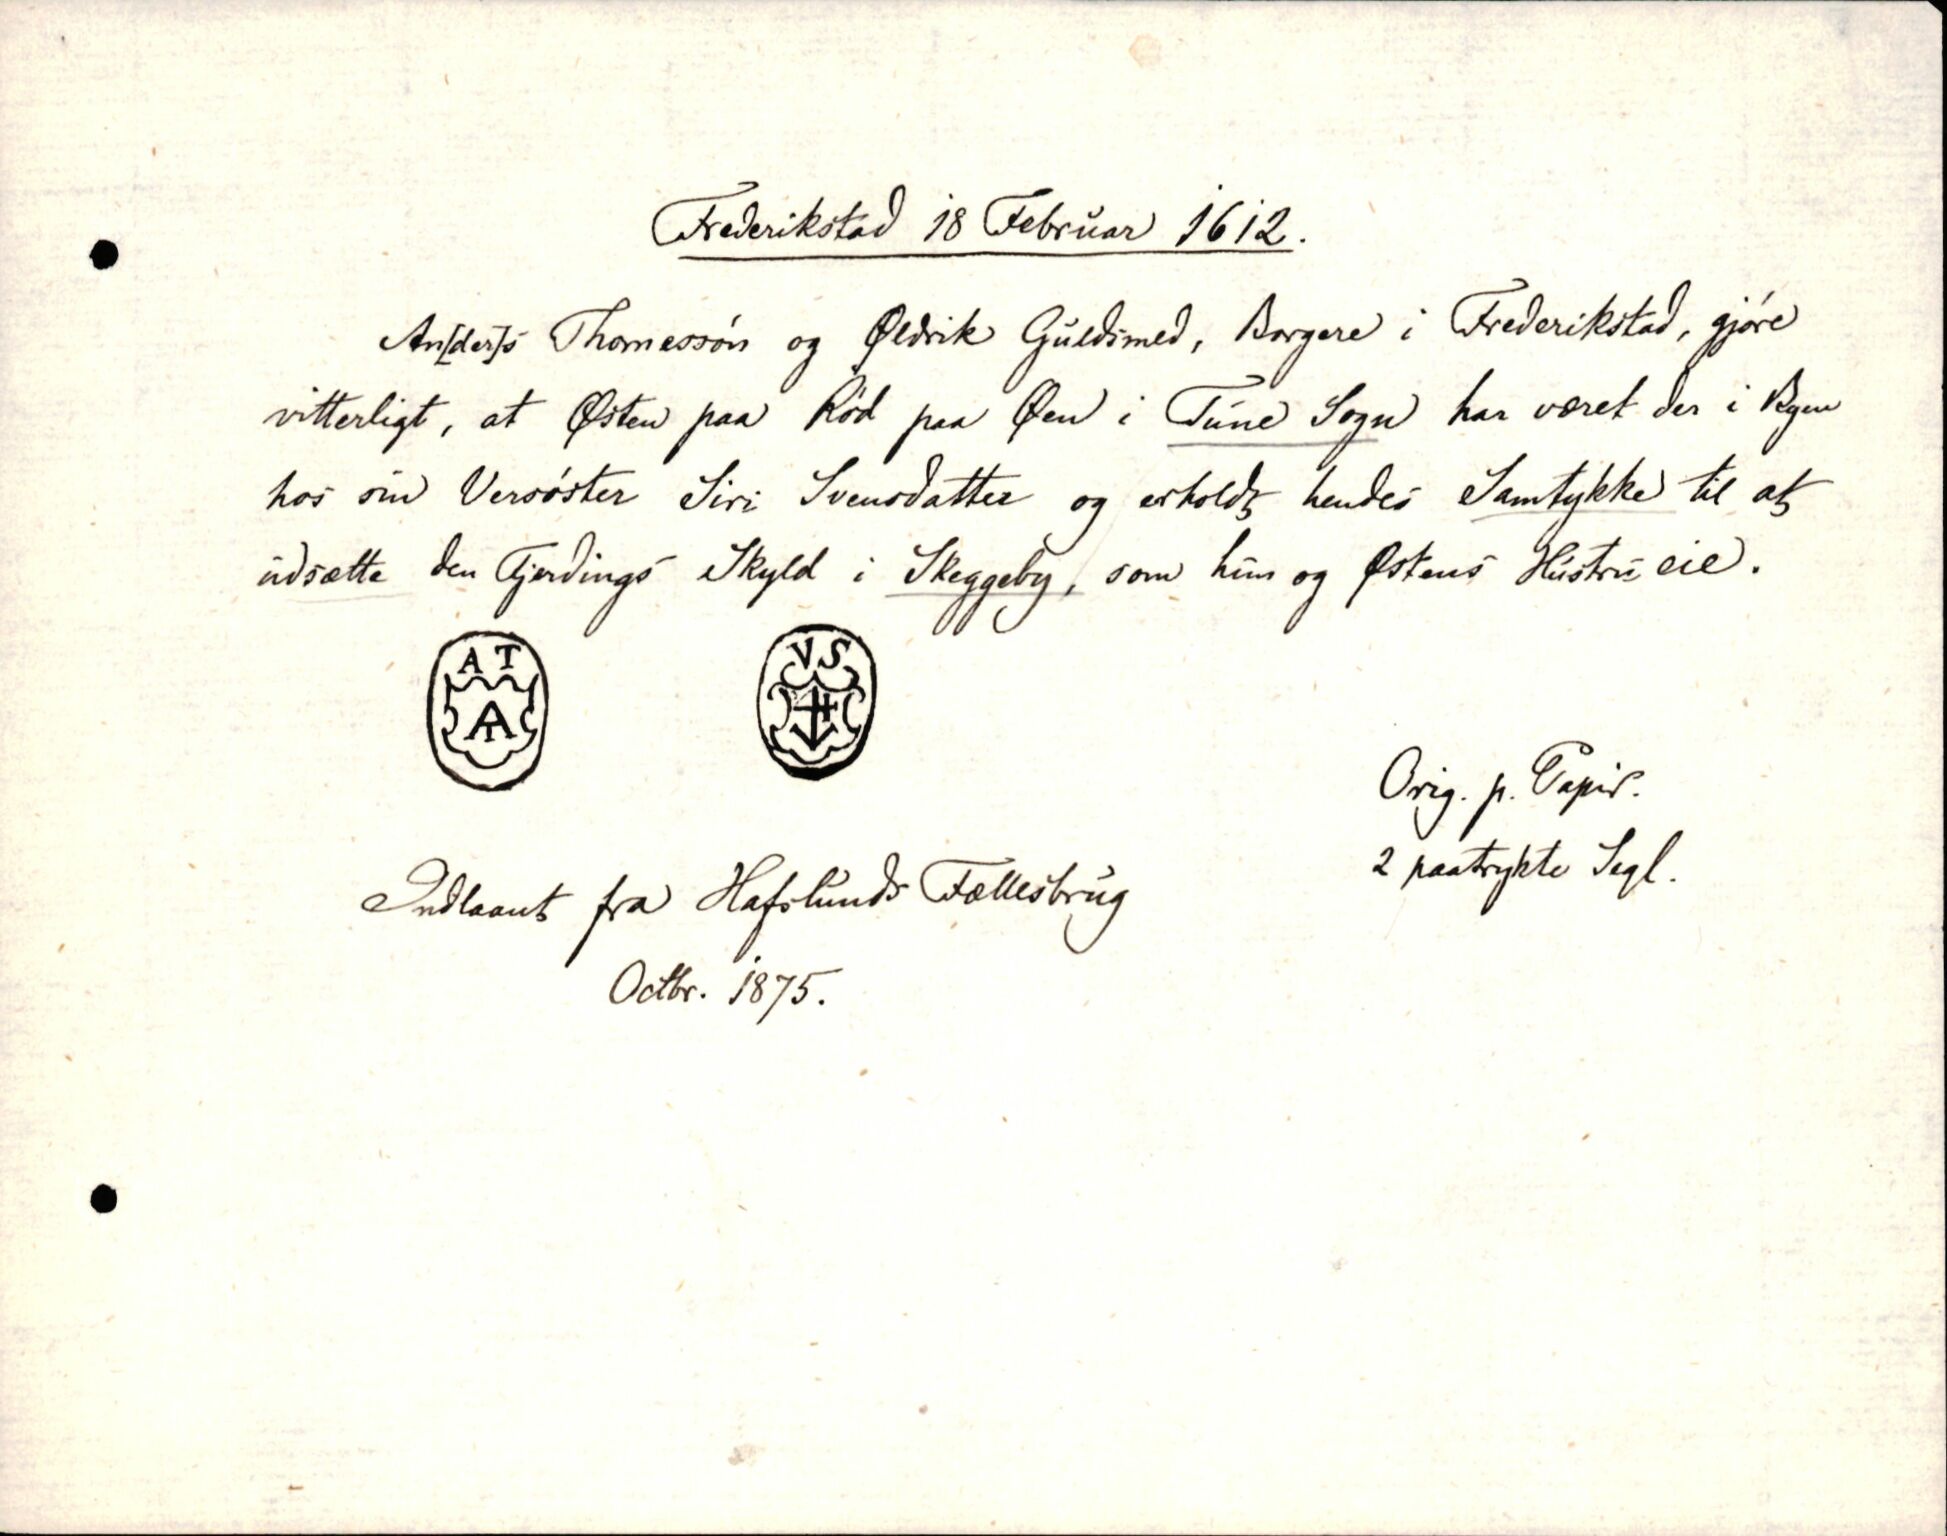 Frederikstad 18 Februar 1612.
An[der]s Thomessøn og Øldrik Guldsmed, Borgere i Frederikstad, gjøre
vitterligt, at Østen paa Rød paa Øen i Tune Sogn har været der i Byen
hos sin Versøster Siri Svensdatter og erholdt hendes Samtykke til at
udsætte den Fjerdings Skyld i Skeggeby, som hun og Østens Hustru eie.
A T
V S
Orig. p. Papir.
2 paatrykte Segl.
Indlaant fra Hafslunds Fællesbrug
Octbr. 1875.